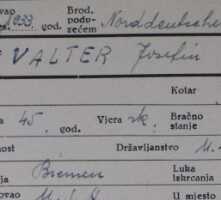 vao Brod. podu-
1933. os. god. zećem Norddeutscher
VALTER Josefin
Kotar
a 45. god. Vjera rk. Bračno stanje
nost Državljanstvo
ja Bremen Luka iskrcanja
ovao U mjesto